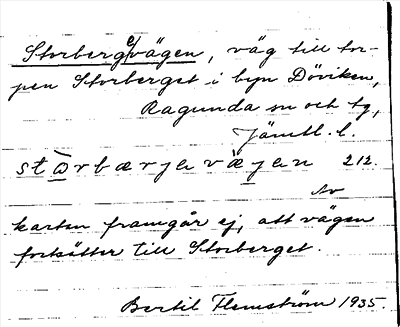 Storberg(e)vägen, väg till tor-
pen Storberget i byn Döviken,
Ragunda sn och tg,
Jämtl. l.
stɷ̀rbærjevä̀jen 212.
Av
kartan framgår ej, att vägen
fortsätter till Storberget.
Bertil Flemström 1935.